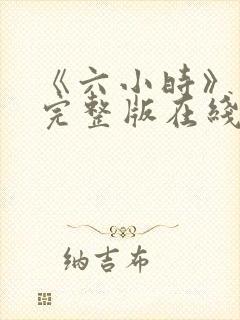 《六小时》
完整版在线
纳吉布